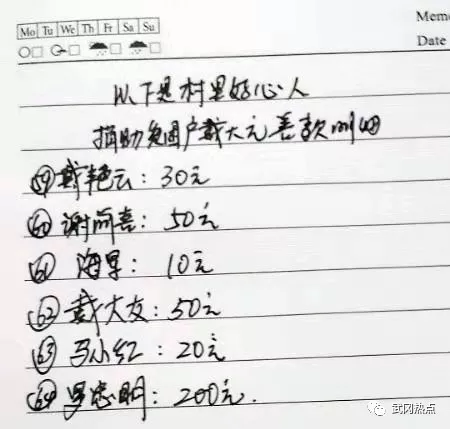 Mo Tu We Th Fr Sa Su
Memo
Date
以下是村里好心人
捐助贫困户戴大元善款明细
59 戴艳云：30元
60 谢前喜：50元
61 海军：10元
62 戴大友：50元
63 马小红：20元
64 罗忠明：200元.
武冈热点